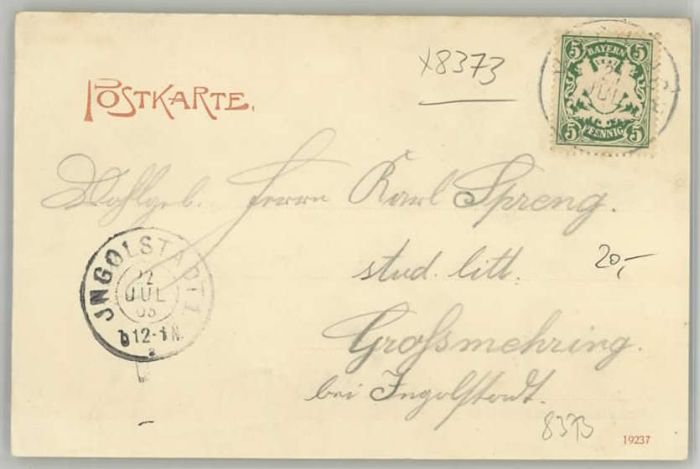 x8373
5 BAYERN 5
5 PFENNIG 5
POSTKARTE.
Wohlgeb. Herrn Karl Spreng.
stud. litt.
20,-
Grossmehring.
bei Ingolstadt.
JNGOLSTADT 1
12
JUL
12-1N.
8373
19237